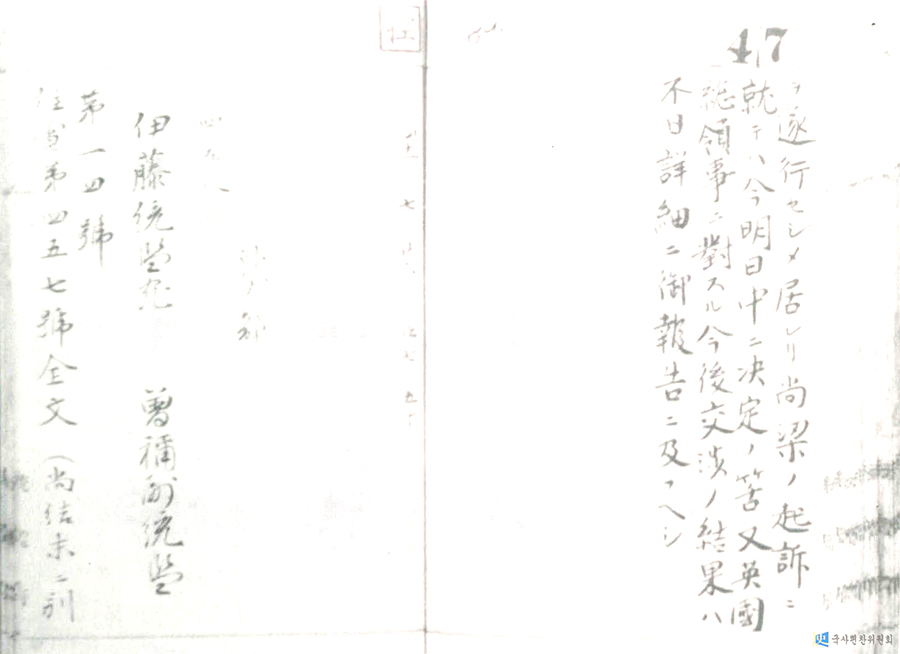 47
ヲ遂行セシメ居レリ尚梁ノ起訴ニ
就テハ今明日中ニ決定ノ筈又英國
総領事ニ對スル今後交渉ノ結果ハ
不日詳細ニ御報告ニ及フヘシ
伊藤統監宛 曽禰副統監
第一四號
往電第四五七號全文(尚結末ニ別
국사편찬위원회